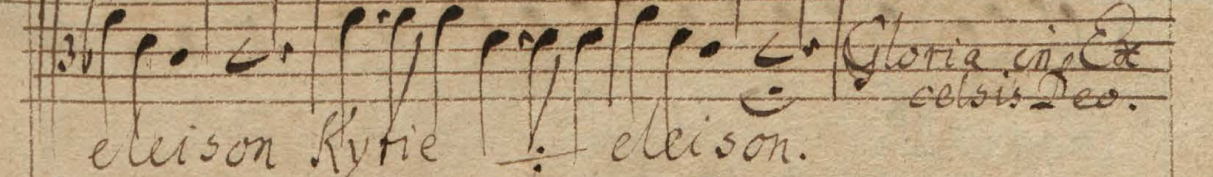 Gloria in Ex
celsis Deo.
eleison Kyrie eleison.